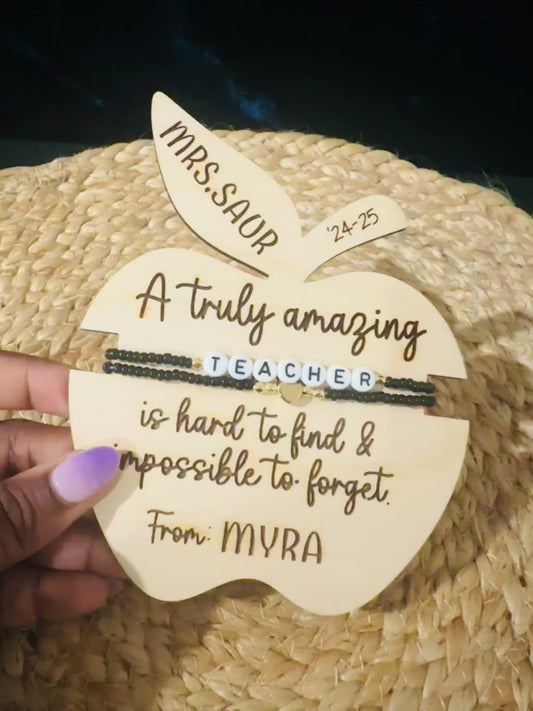 MRS.SAUR
'24-25
A truly amazing
TEACHER
is hard to find &
impossible to forget.
From: MYRA